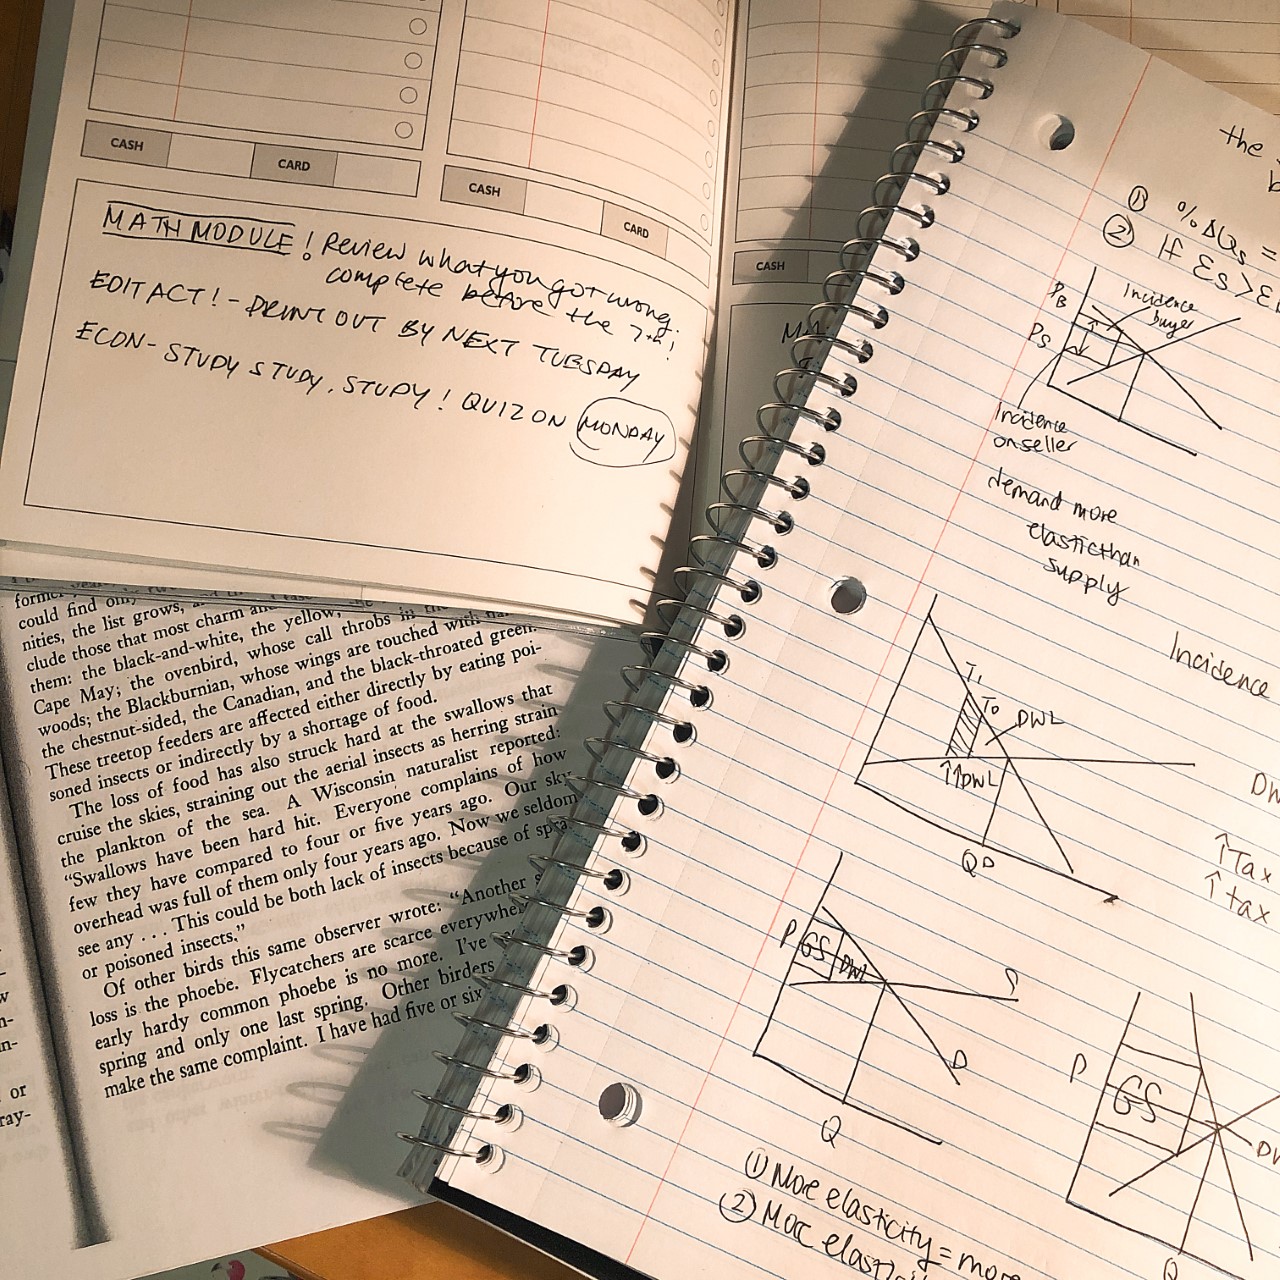 CASH
CARD
CASH
CARD
CASH
MATH MODULE! Review what you got wrong.
complete before the 7th!
EDIT ACT! - PRINT OUT BY NEXT TUESDAY
ECON - STUDY STUDY, STUDY! QUIZ ON MONDAY
could find only
nities, the list grows, and
clude those that most charm
them: the black-and-white, the yellow,
Cape May; the ovenbird, whose call throbs in the
woods; the Blackburnian, whose wings are touched with
the chestnut-sided, the Canadian, and the black-throated green.
These treetop feeders are affected either directly by eating poi-
soned insects or indirectly by a shortage of food.
The loss of food has also struck hard at the swallows that
cruise the skies, straining out the aerial insects as herring strain
the plankton of the sea. A Wisconsin naturalist reported:
“Swallows have been hard hit. Everyone complains of how
few they have compared to four or five years ago. Our sky
overhead was full of them only four years ago. Now we seldom
see any . . . This could be both lack of insects because of
or poisoned insects.”
Of other birds this same observer wrote: “Another
loss is the phoebe. Flycatchers are scarce everywhere
early hardy common phoebe is no more. I've
spring and only one last spring. Other birders
make the same complaint. I have had five or six
or
ray-
the
① %ΔQs =
② If Es > E
PB
Incidence
buyer
PS
Incidence
on seller
demand more
elastic than
supply
Incidence
T1
T0
DWL
↑↑DWL
QD
↑Tax
↑tax
P
GS
DWL
S
D
Q
P
GS
Q
① More elasticity = more
② More